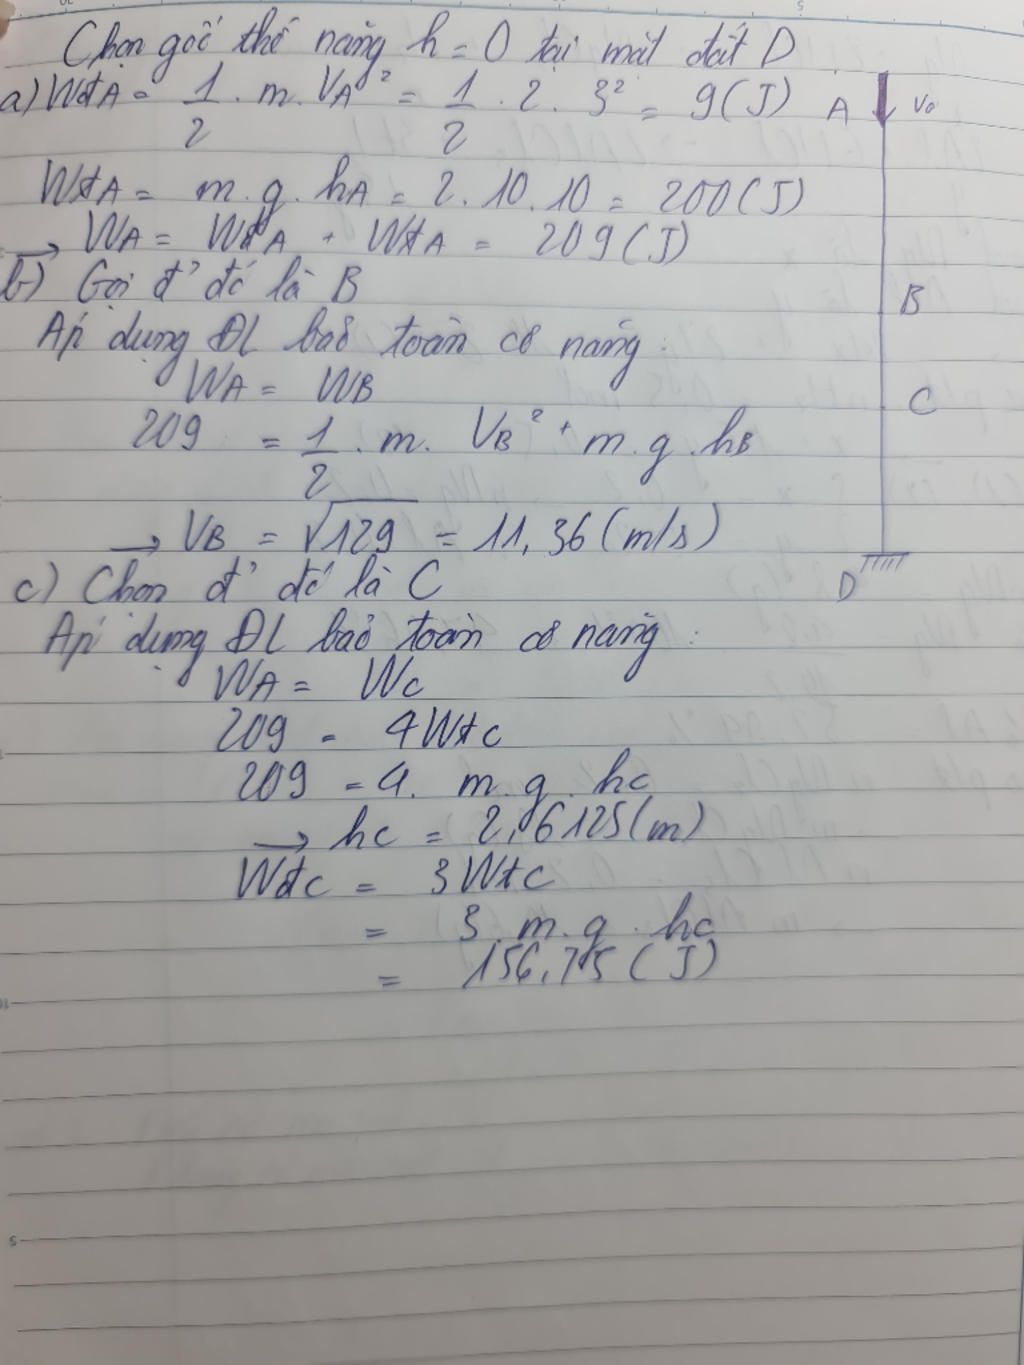 Chọn gốc thế năng h = 0 tại mặt đất D
a) WđA = 1/2 . m. VA² = 1/2 . 2. 3² = 9 (J)
A v₀
WtA = m. g. hA = 2. 10. 10 = 200 (J)
→ WA = WđA + WtA = 209 (J)
b) Gọi đ' đó là B
B
Áp dụng ĐL bảo toàn cơ năng:
WA = WB
C
209 = 1/2 . m. VB² + m. g. hB
→ VB = √129 = 11,36 (m/s)
c) Chọn đ' đó là C
D
Áp dụng ĐL bảo toàn cơ năng:
WA = WC
209 = 4WtC
209 = 4. m. g. hC
→ hC = 2,6125 (m)
WđC = 3WtC
= 3. m. g. hC
= 156,75 (J)